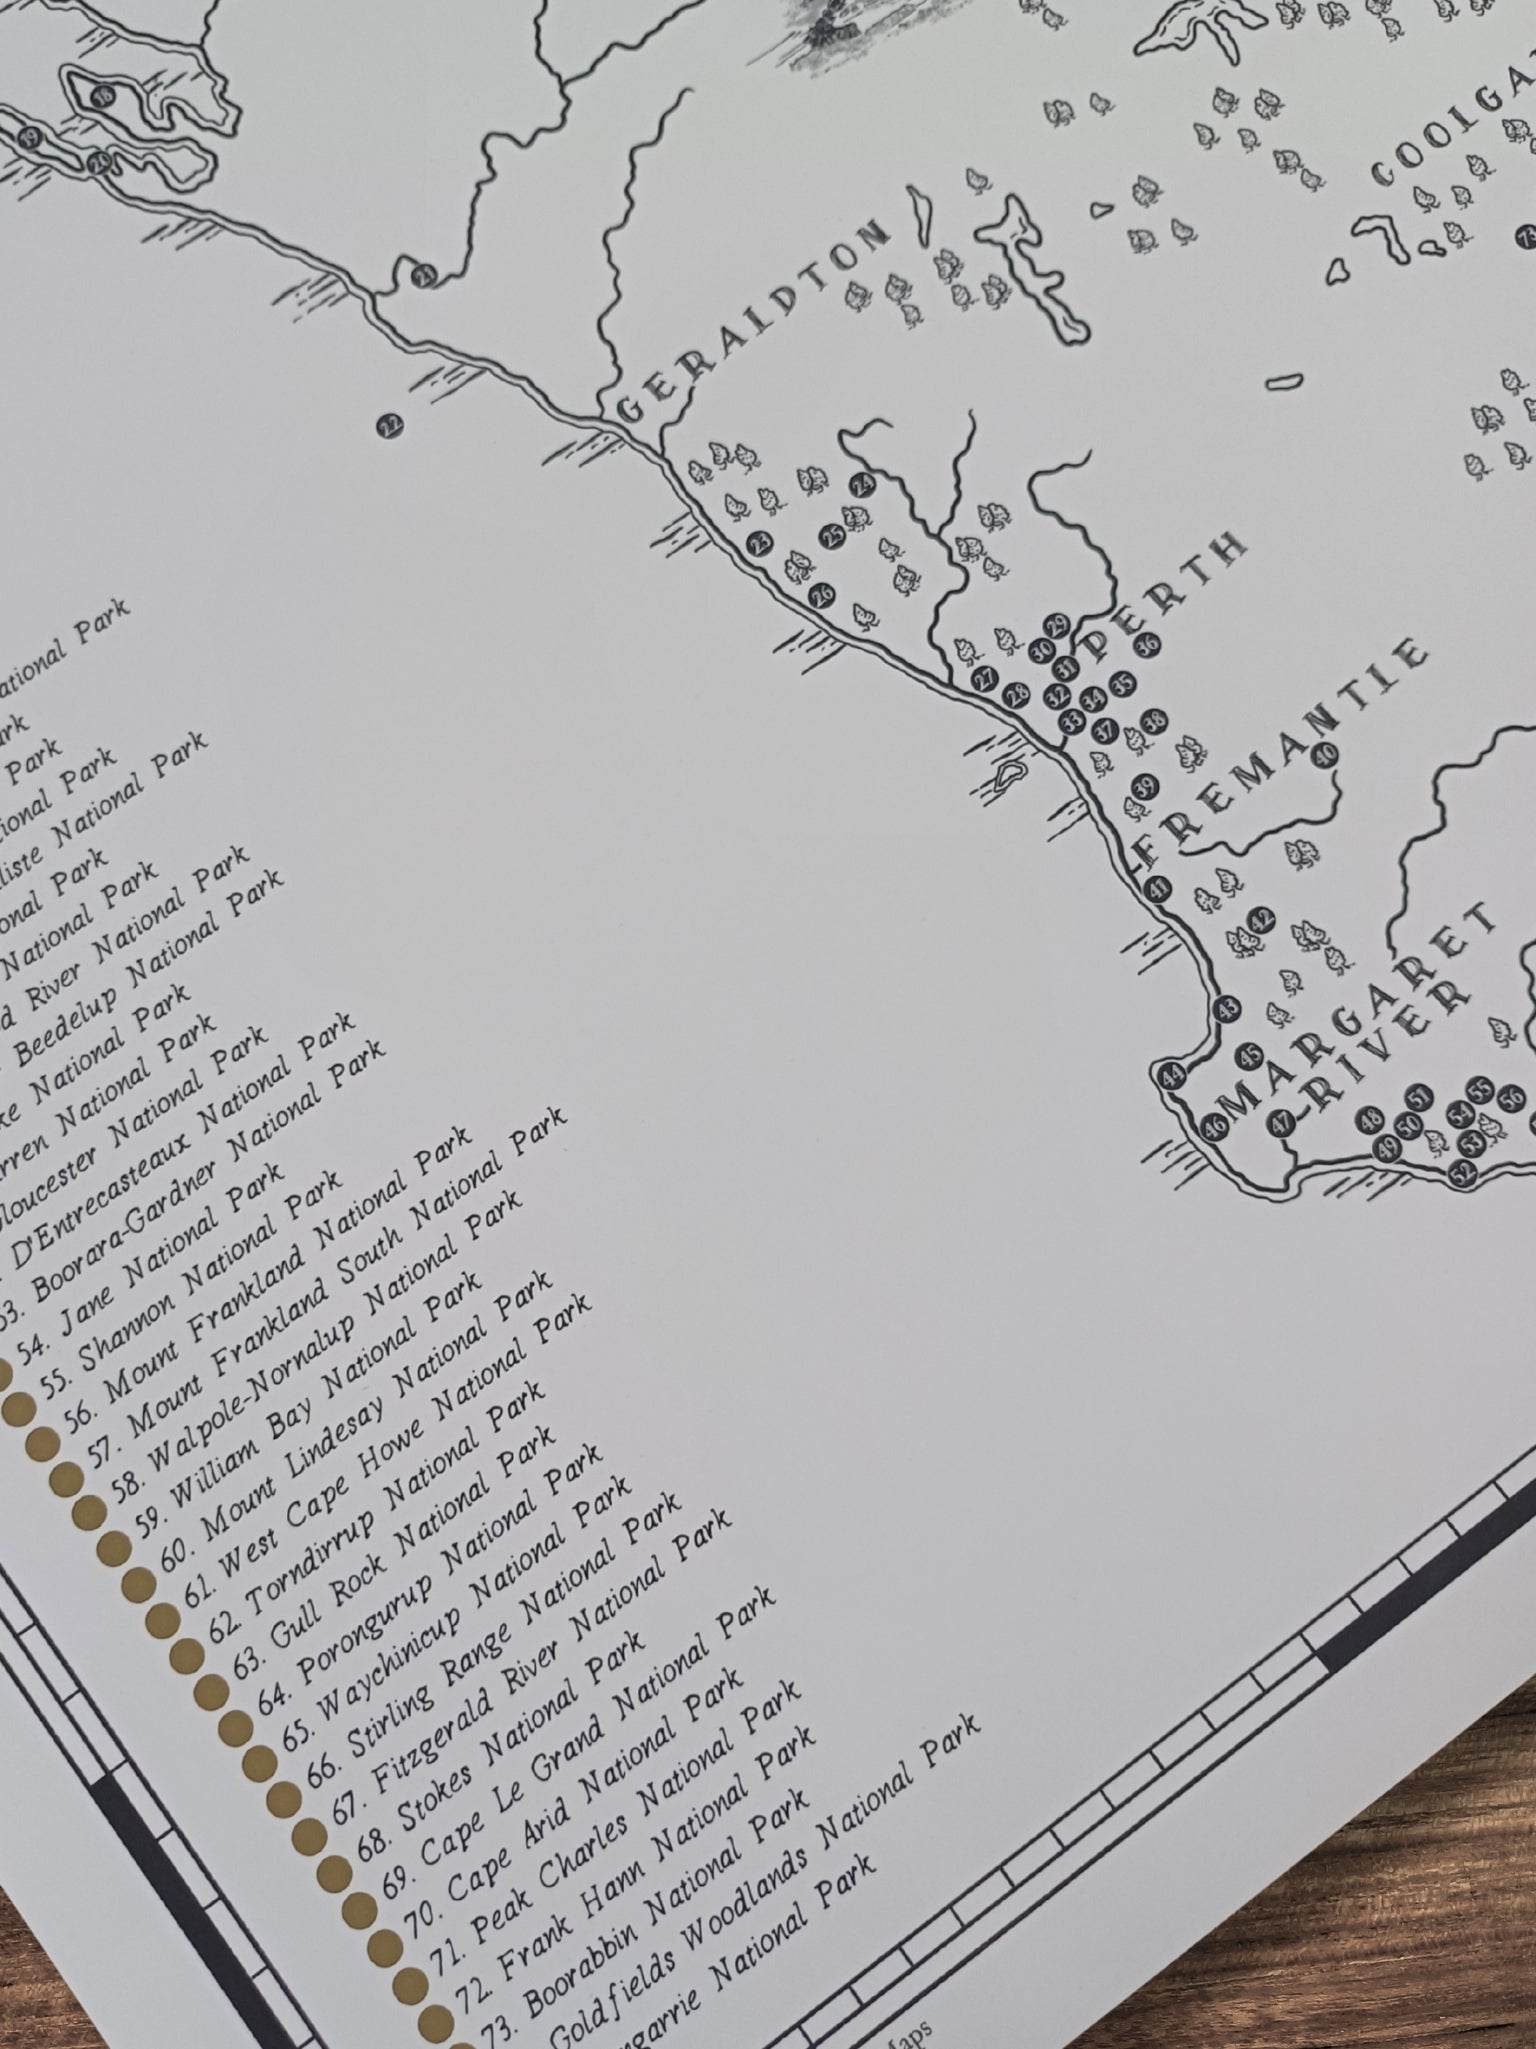 COOLGA
GERALDTON
PERTH
FREMANTLE
MARGARET
RIVER
18
19
20
21
22
23
24
25
26
27
28
29
30
31
32
33
34
35
36
37
38
39
40
41
42
43
44
45
46
47
48
49
50
51
52
53
54
55
56
73
ational Park
ark
Park
ional Park
liste National Park
onal Park
National Park
d River National Park
Beedelup National Park
ke National Park
rren National Park
loucester National Park
D'Entrecasteaux National Park
53. Boorara-Gardner National Park
54. Jane National Park
55. Shannon National Park
56. Mount Frankland National Park
57. Mount Frankland South National Park
58. Walpole-Nornalup National Park
59. William Bay National Park
60. Mount Lindesay National Park
61. West Cape Howe National Park
62. Torndirrup National Park
63. Gull Rock National Park
64. Porongurup National Park
65. Waychinicup National Park
66. Stirling Range National Park
67. Fitzgerald River National Park
68. Stokes National Park
69. Cape Le Grand National Park
70. Cape Arid National Park
71. Peak Charles National Park
72. Frank Hann National Park
73. Boorabbin National Park
Goldfields Woodlands National Park
ngarrie National Park
Maps